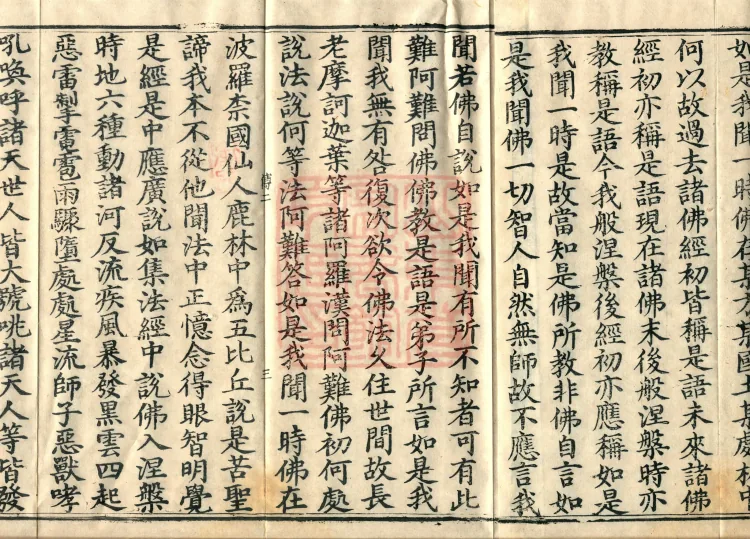 如是我聞一時佛在某方某國土某處林中
何以故過去諸佛經初皆稱是語未來諸佛
經初亦稱是語現在諸佛末後般涅槃時亦
教稱是語今我般涅槃後經初亦應稱如是
我聞一時是故當知是佛所教非佛自言如
是我聞佛一切智人自然無師故不應言我
聞若佛自說如是我聞有所不知者可有此
難阿難問佛佛教是語是弟子所言如是我
聞我無有咎復次欲令佛法久住世間故長
老摩訶迦葉等諸阿羅漢問阿難佛初何處
說法說何等法阿難答如是我聞一時佛在
二 三
波羅柰國仙人鹿林中為五比丘說是苦聖
諦我本不從他聞法中正憶念得眼智明覺
是經是中應廣說如集法經中說佛入涅槃
時地六種動諸河反流疾風暴發黑雲四起
惡雷掣電雹雨驟墮處處星流師子惡獸哮
吼喚呼諸天世人皆大號咷諸天人等皆發